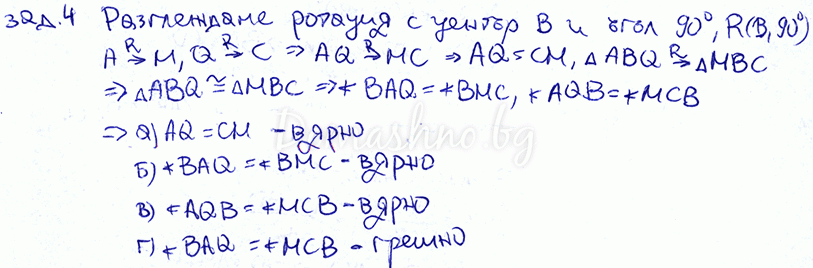 зад.4 Разглеждаме ротация с център B и ъгъл 90°, R(B, 90°)
A R→ M, Q R→ C ⇒ AQ R→ MC ⇒ AQ = CM, △ABQ R→ △MBC
⇒ △ABQ ≅ △MBC ⇒ ∢BAQ = ∢BMC, ∢AQB = ∢MCB
⇒ а) AQ = CM - вярно
Domashno.bg
б) ∢BAQ = ∢BMC - вярно
в) ∢AQB = ∢MCB - вярно
г) ∢BAQ = ∢MCB - грешно